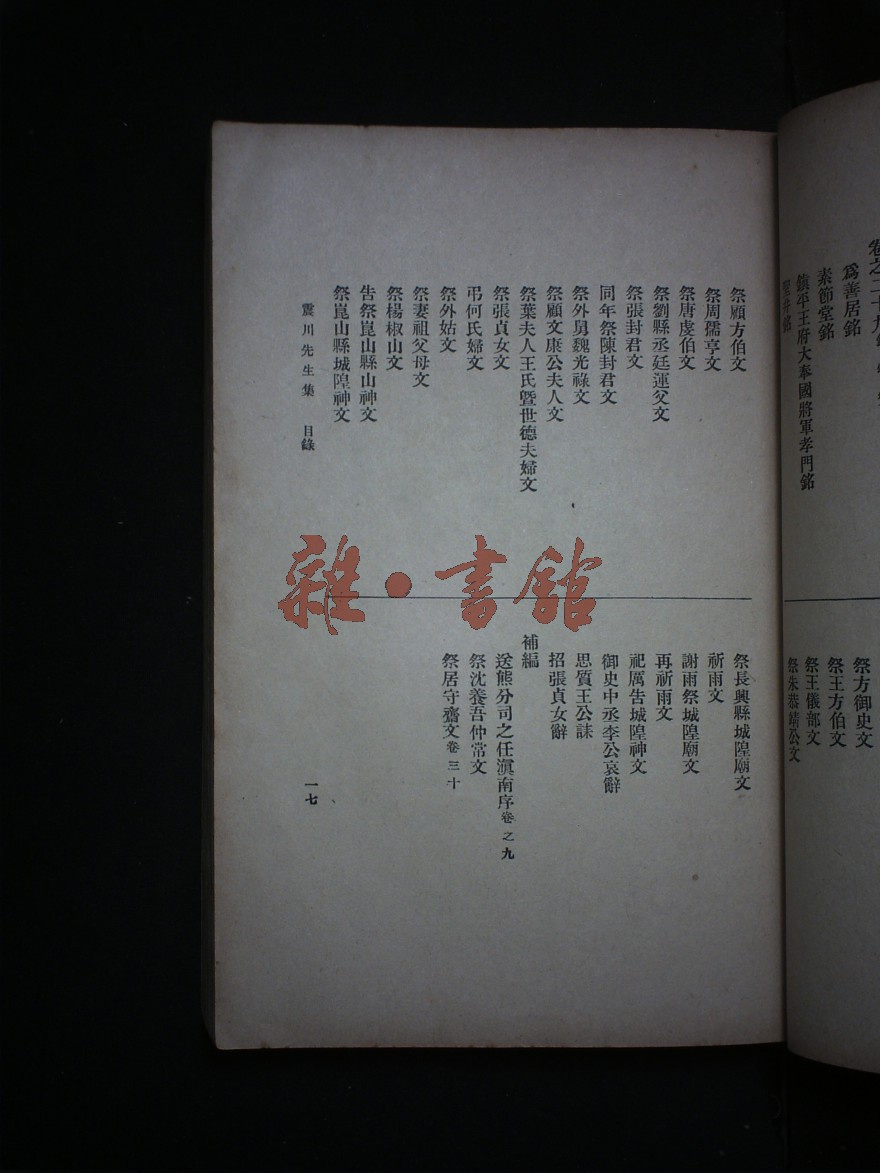 爲善居銘
素節堂銘
鎮平王府大奉國將軍孝門銘
祭方御史文
祭王方伯文
祭王儀部文
祭朱恭靖公文
祭顧方伯文
祭周孺亨文
祭唐虔伯文
祭劉縣丞廷運父文
祭張封君文
同年祭陳封君文
祭外舅魏光祿文
祭顧文康公夫人文
祭葉夫人王氏暨世德夫婦文
祭張貞女文
弔何氏婦文
祭外姑文
祭妻祖父母文
祭楊椒山文
告祭崑山縣山神文
祭崑山縣城隍神文
祭長興縣城隍廟文
祈雨文
謝雨祭城隍廟文
再祈雨文
祀厲告城隍神文
御史中丞李公哀辭
思質王公誄
招張貞女辭
補編
送熊分司之任滇南序卷之九
祭沈養吾仲常文
祭居守齋文卷三十
震川先生集 目錄
一七
雜·書館